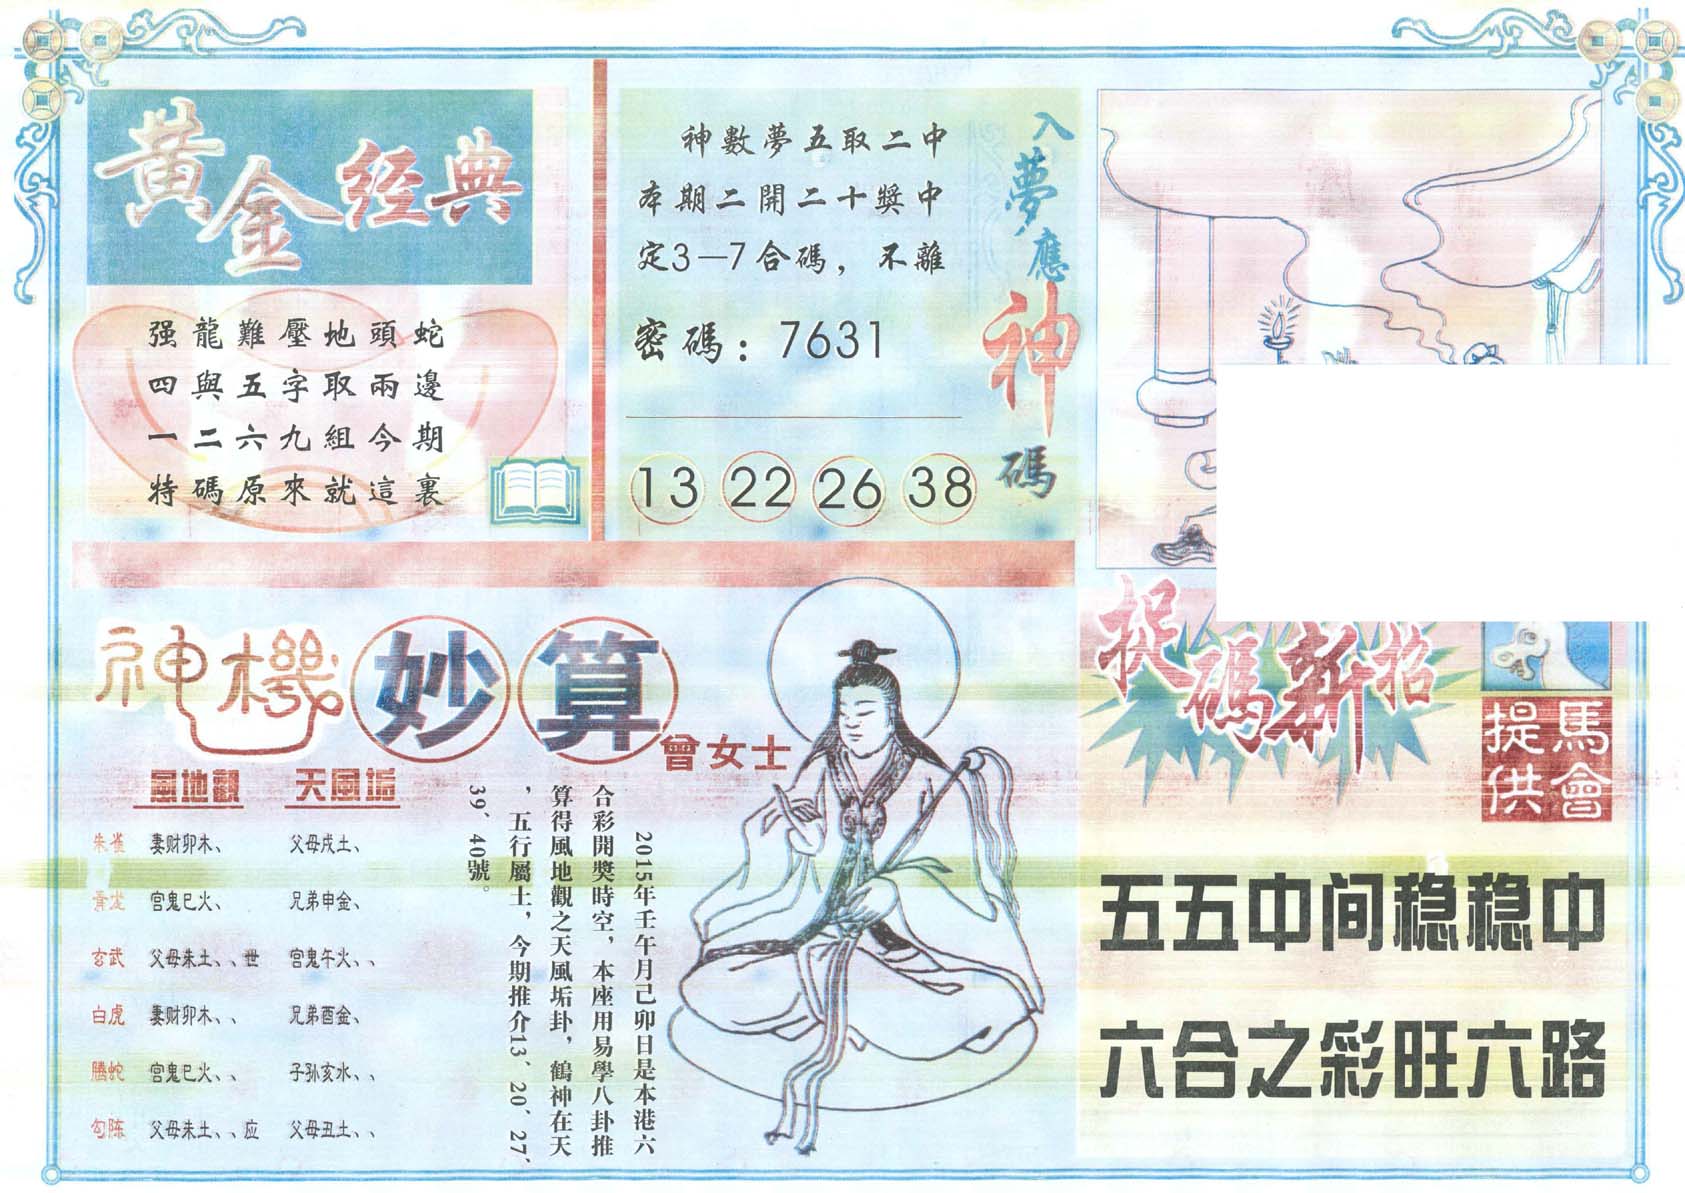 黃金经典
强龍難壓地頭蛇
四與五字取兩邊
一二六九組今期
特碼原來就這裏
入夢應神碼
神數夢五取二中
本期二開二十獎中
定3—7合碼，不離
密碼：7631
13 22 26 38
神機妙算
曾女士
風地觀 天風垢
朱雀 妻财卯木、 父母戌土、
青龙 官鬼巳火、 兄弟申金、
玄武 父母未土、、世 官鬼午火、、
白虎 妻财卯木、、 兄弟酉金、
腾蛇 官鬼巳火、、 子孙亥水、、
勾陈 父母未土、、应 父母丑土、、
2015年壬午月己卯日是本港六
合彩開獎時空，本座用易學八卦推
算得風地觀之天風垢卦，鶴神在天
，五行屬土，今期推介13、20、27、
39、40號。
捉碼新招
馬會
提供
五五中间稳稳中
六合之彩旺六路